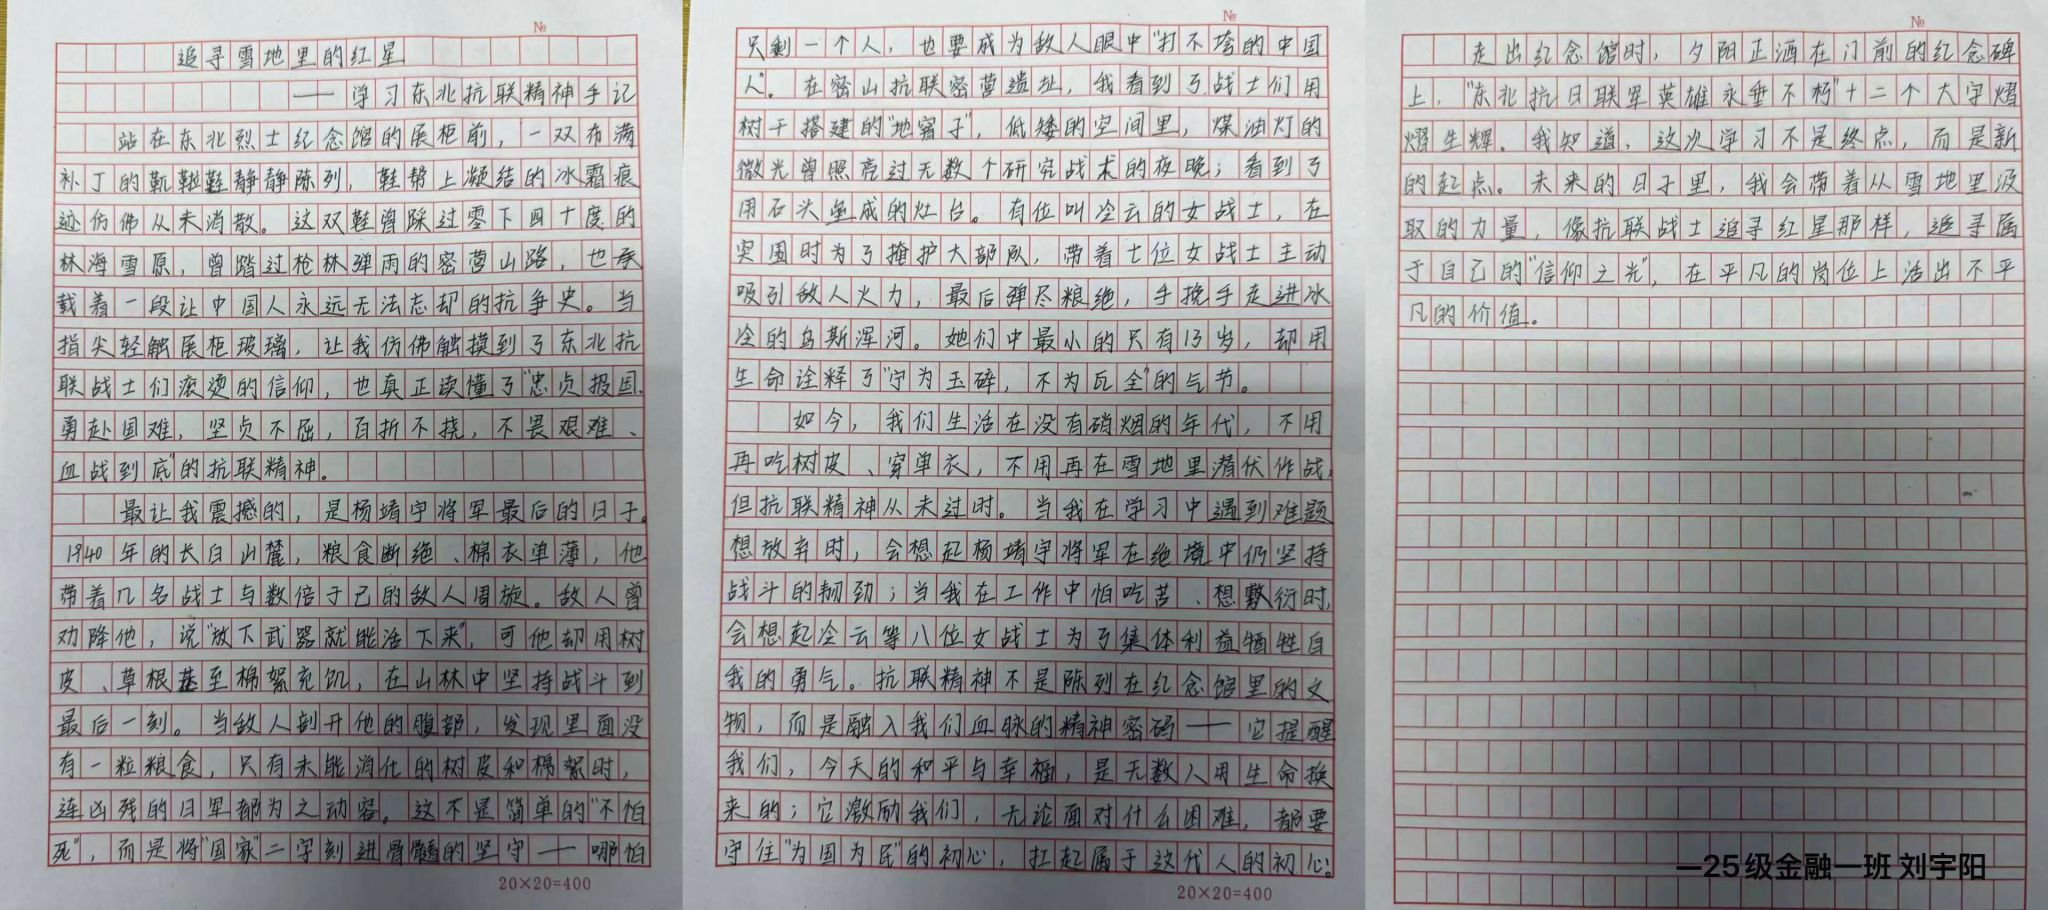 №
追寻雪地里的红星
——学习东北抗联精神手记
站在东北烈士纪念馆的展柜前，一双布满
补丁的靰鞡鞋静静陈列，鞋帮上凝结的冰霜痕
迹仿佛从未消散。这双鞋曾踩过零下四十度的
林海雪原，曾踏过枪林弹雨的密营山路，也承
载着一段让中国人永远无法忘却的抗争史。当
指尖轻触展柜玻璃，让我仿佛触摸到了东北抗
联战士们滚烫的信仰，也真正读懂了"忠贞报国、
勇赴国难，坚贞不屈，百折不挠，不畏艰难、
血战到底"的抗联精神。
最让我震撼的，是杨靖宇将军最后的日子。
1940年的长白山麓，粮食断绝、棉衣单薄，他
带着几名战士与数倍于己的敌人周旋。敌人曾
劝降他，说"放下武器就能活下来"，可他却用树
皮、草根甚至棉絮充饥，在山林中坚持战斗到
最后一刻。当敌人剖开他的腹部，发现里面没
有一粒粮食，只有未能消化的树皮和棉絮时，
连凶残的日军都为之动容。这不是简单的"不怕
死"，而是将"国家"二字刻进骨髓的坚守——哪怕
20×20=400
№
只剩一个人，也要成为敌人眼中"打不垮的中国
人"。在密山抗联密营遗址，我看到了战士们用
树干搭建的"地窨子"，低矮的空间里，煤油灯的
微光曾照亮过无数个研究战术的夜晚；看到了
用石头垒成的灶台。有位叫冷云的女战士，在
突围时为了掩护大部队，带着七位女战士主动
吸引敌人火力，最后弹尽粮绝，手挽手走进冰
冷的乌斯浑河。她们中最小的只有13岁，却用
生命诠释了"宁为玉碎，不为瓦全"的气节。
如今，我们生活在没有硝烟的年代，不用
再吃树皮、穿单衣，不用再在雪地里潜伏作战，
但抗联精神从未过时。当我在学习中遇到难题
想放弃时，会想起杨靖宇将军在绝境中仍坚持
战斗的韧劲；当我在工作中怕吃苦、想敷衍时，
会想起冷云等八位女战士为了集体利益牺牲自
我的勇气。抗联精神不是陈列在纪念馆里的文
物，而是融入我们血脉的精神密码——它提醒
我们，今天的和平与幸福，是无数人用生命换
来的；它激励我们，无论面对什么困难，都要
守住"为国为民"的初心，扛起属于这代人的初心。
20×20=400
№
走出纪念馆时，夕阳正洒在门前的纪念碑
上，"东北抗日联军英雄永垂不朽"十二个大字熠
熠生辉。我知道，这次学习不是终点，而是新
的起点。未来的日子里，我会带着从雪地里汲
取的力量，像抗联战士追寻红星那样，追寻属
于自己的"信仰之光"，在平凡的岗位上活出不平
凡的价值。
—25级金融一班 刘宇阳